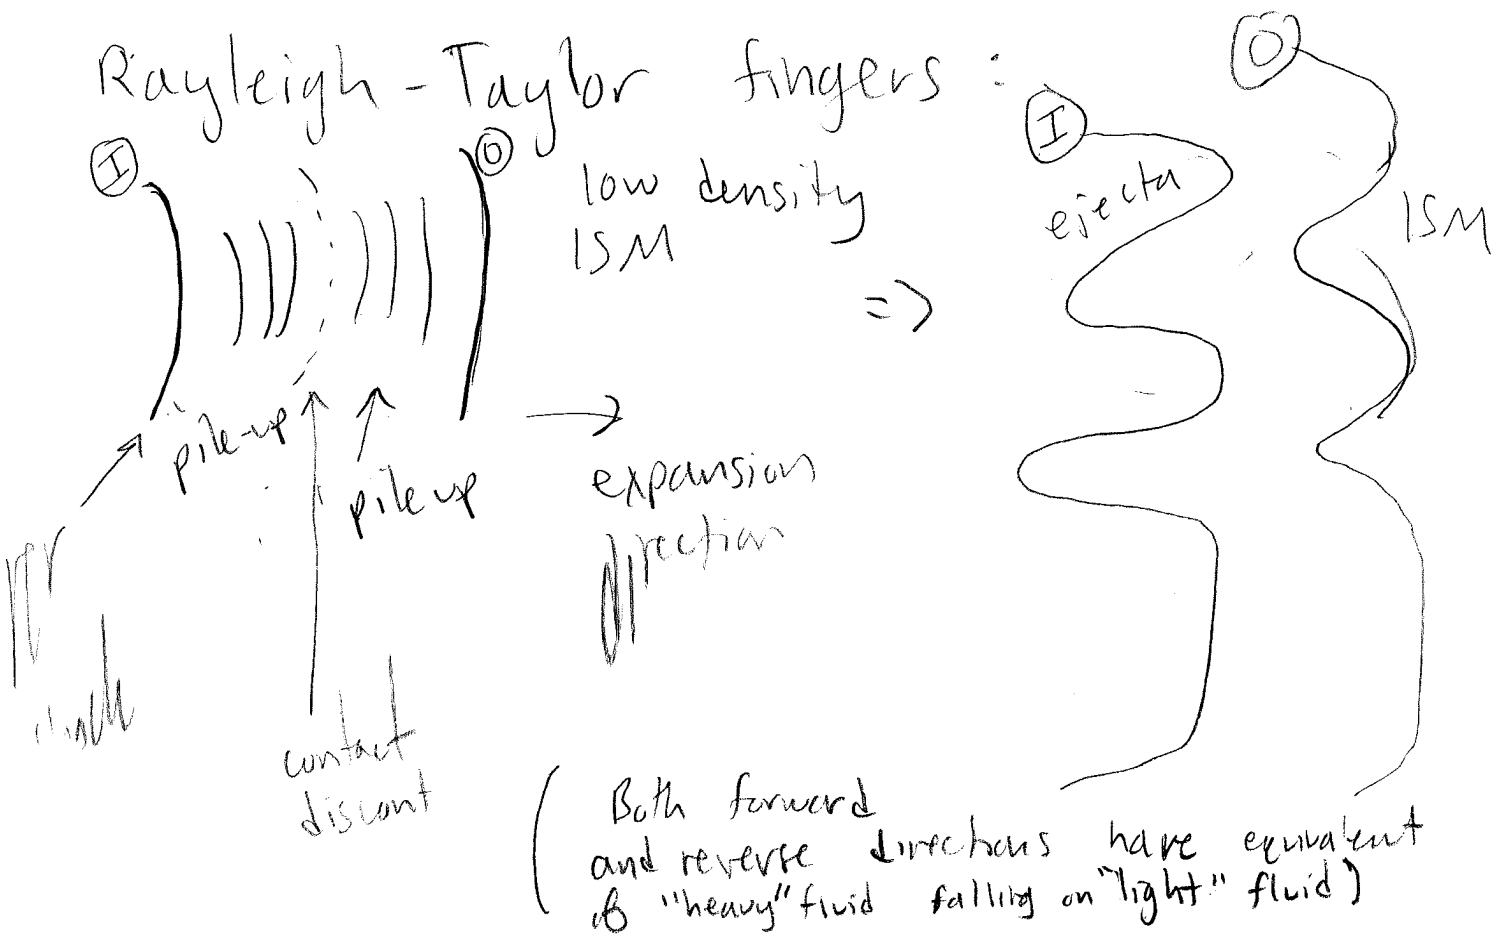 Rayleigh-Taylor fingers:
I
O
low density
ISM
=>
I
O
ejecta
ISM
pile-up
pile up
expansion
direction
contact
discont
( Both forward
and reverse directions have equivalent
of "heavy" fluid falling on "light" fluid)